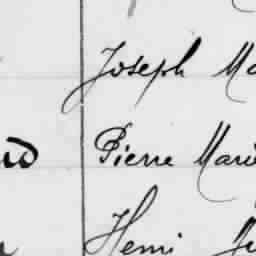 Joseph Ma
Pierre Marie
Henri